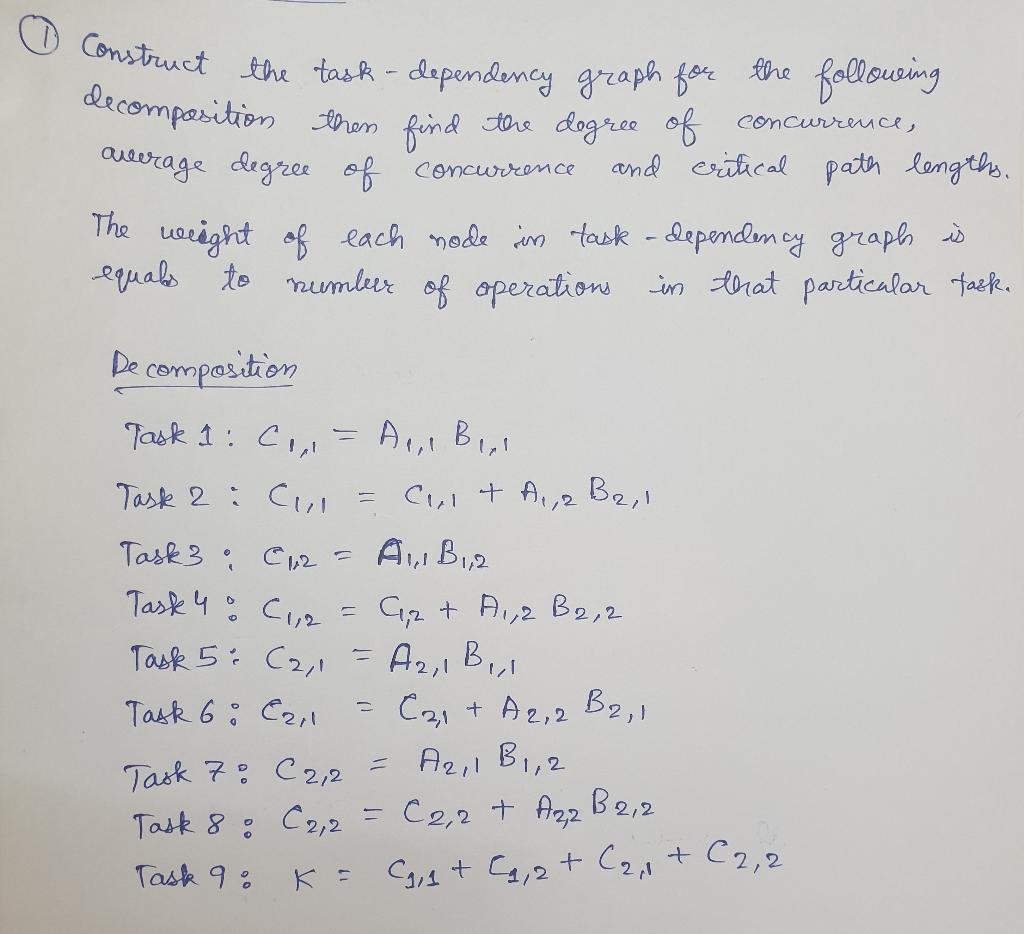 ① Construct the task - dependency graph for the following
decomposition then find the degree of concurrence,
average degree of concurrence and critical path lengths.
The weight of each node in task - dependency graph is
equals to number of operations in that particular task.
Decomposition
Task 1 : C1,1 = A1,1 B1,1
Task 2 : C1,1 = C1,1 + A1,2 B2,1
Task 3 : C1,2 = A1,1 B1,2
Task 4 : C1,2 = C1,2 + A1,2 B2,2
Task 5 : C2,1 = A2,1 B1,1
Task 6 : C2,1 = C2,1 + A2,2 B2,1
Task 7 : C2,2 = A2,1 B1,2
Task 8 : C2,2 = C2,2 + A2,2 B2,2
Task 9 : K = C1,1 + C1,2 + C2,1 + C2,2